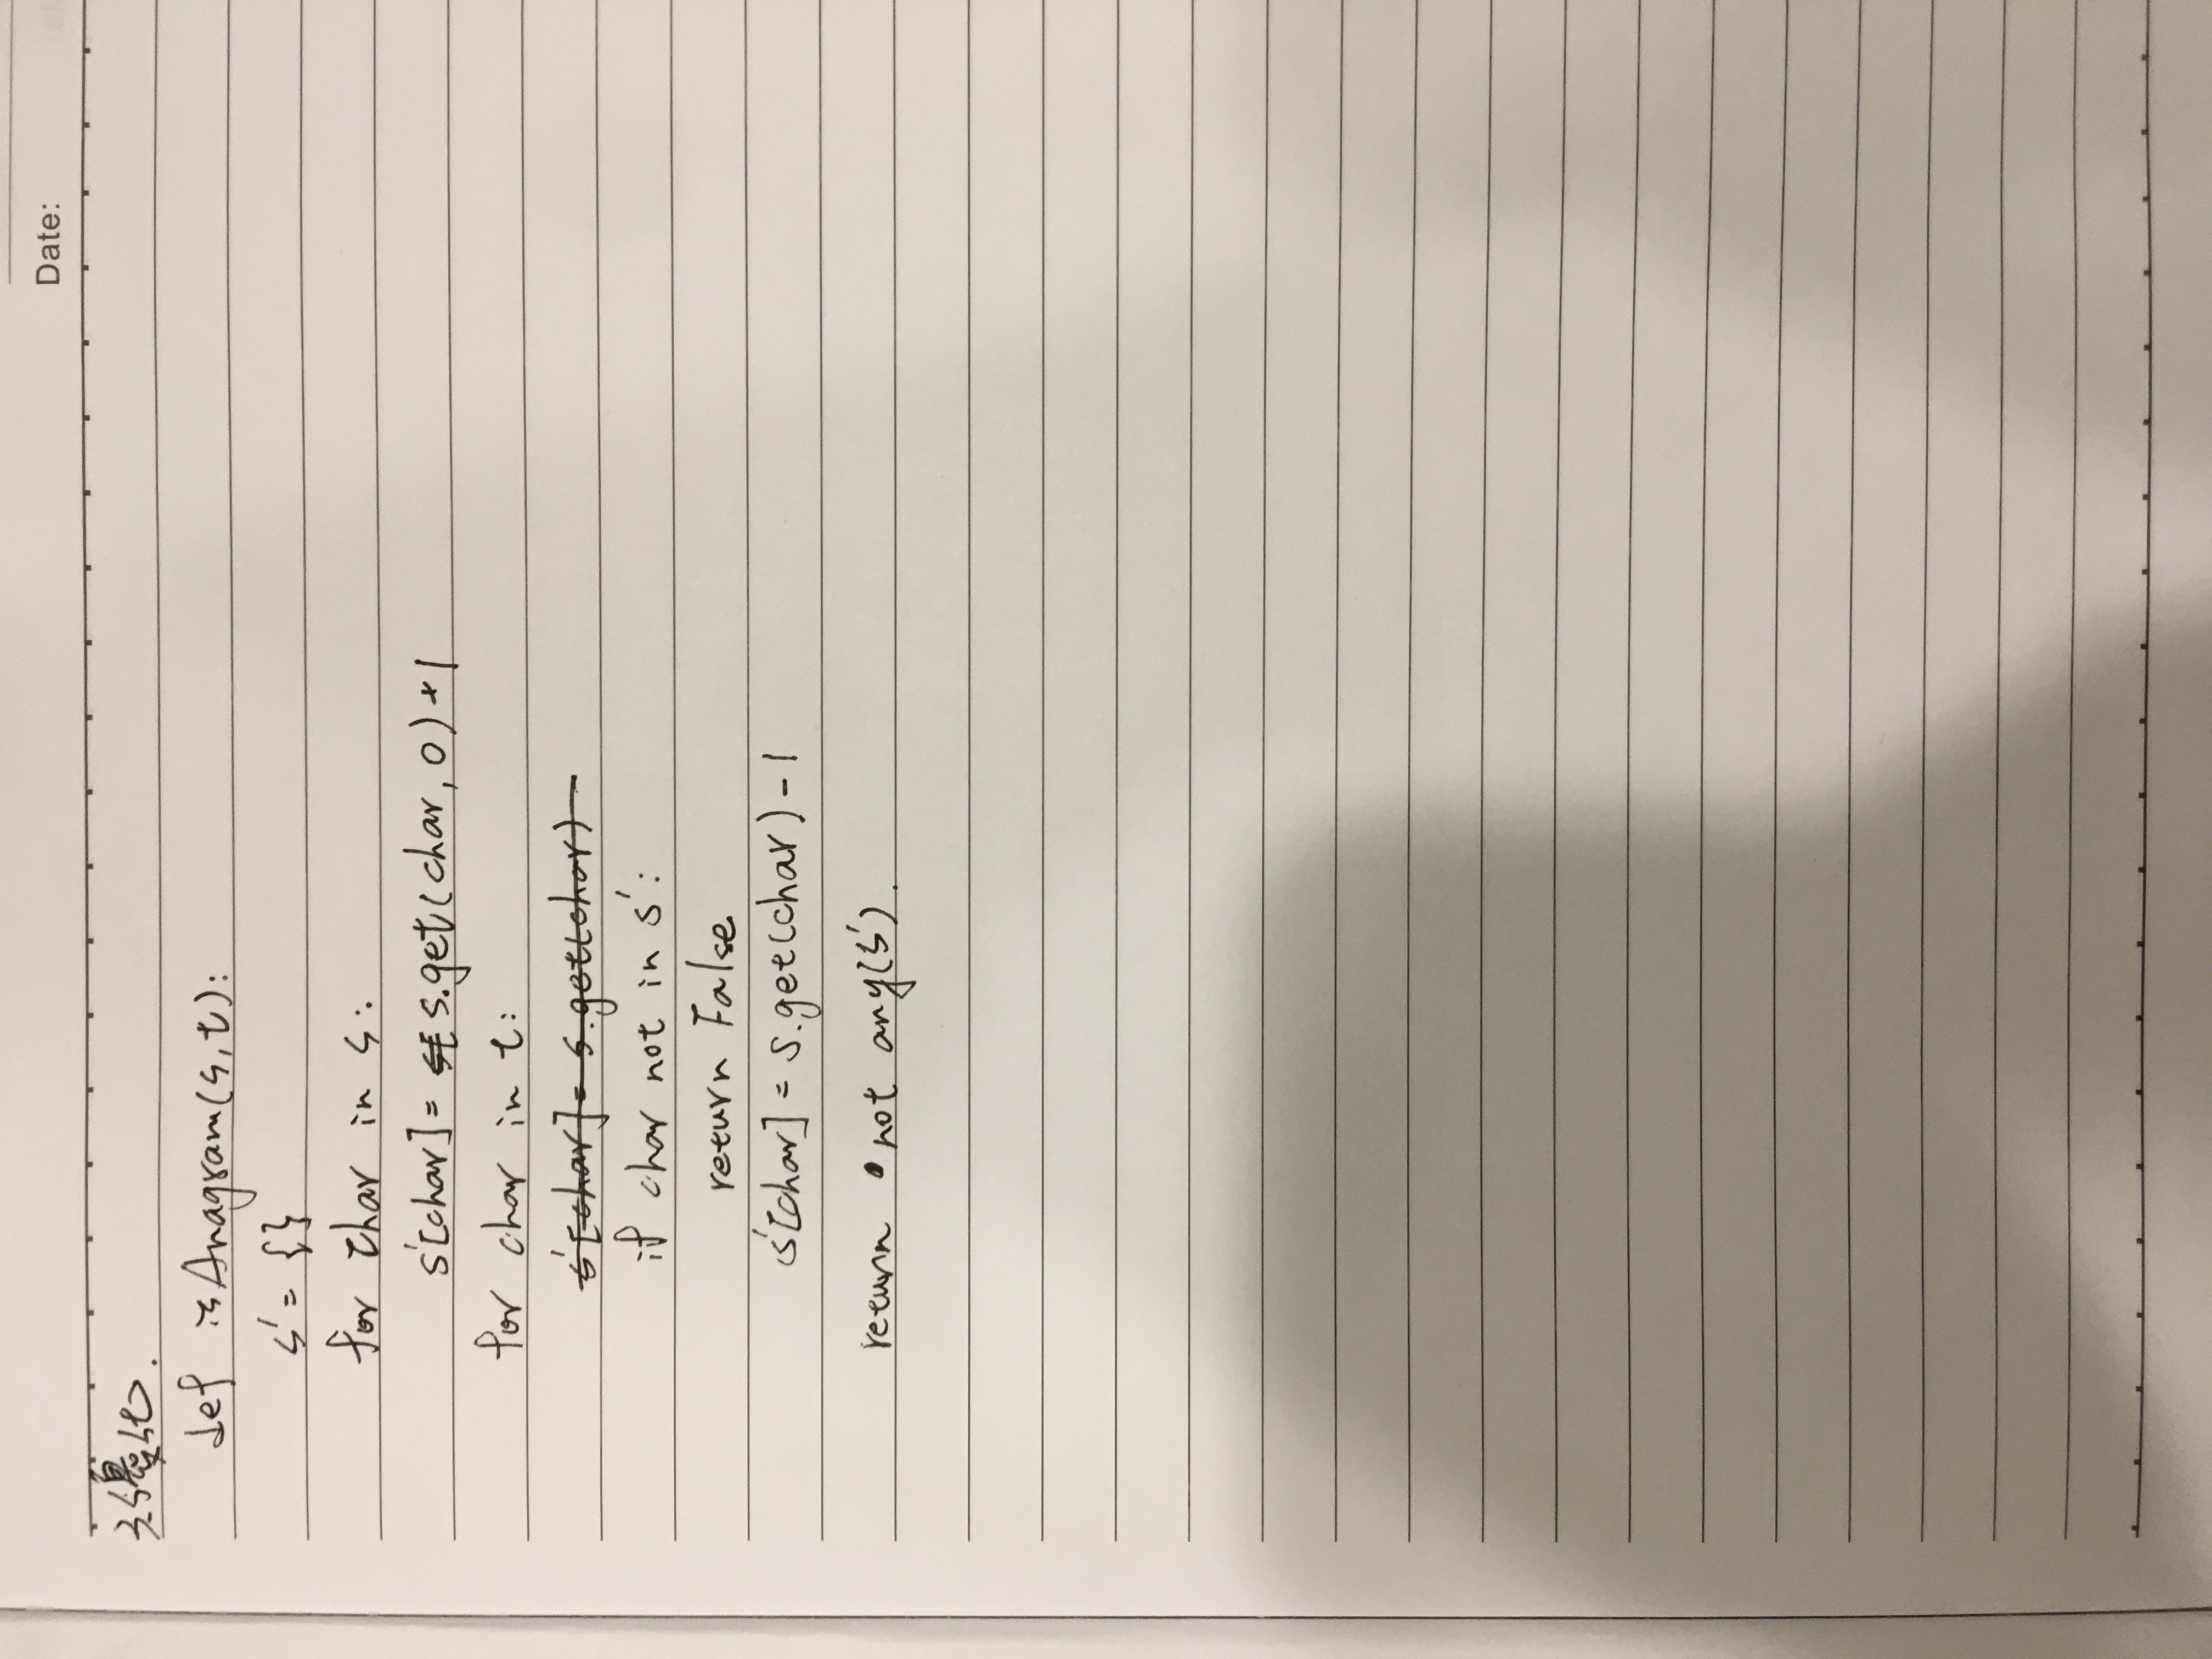 Date:
3.優化.
def isAnagram(s,t):
s'= {}
for char in s:
s'[char]= s.get(char, 0)+1
for char in t:
s'[char]= s.get(char)-
if char not in s':
return False
s'[char] = s.get(char)-1
return not any(s').